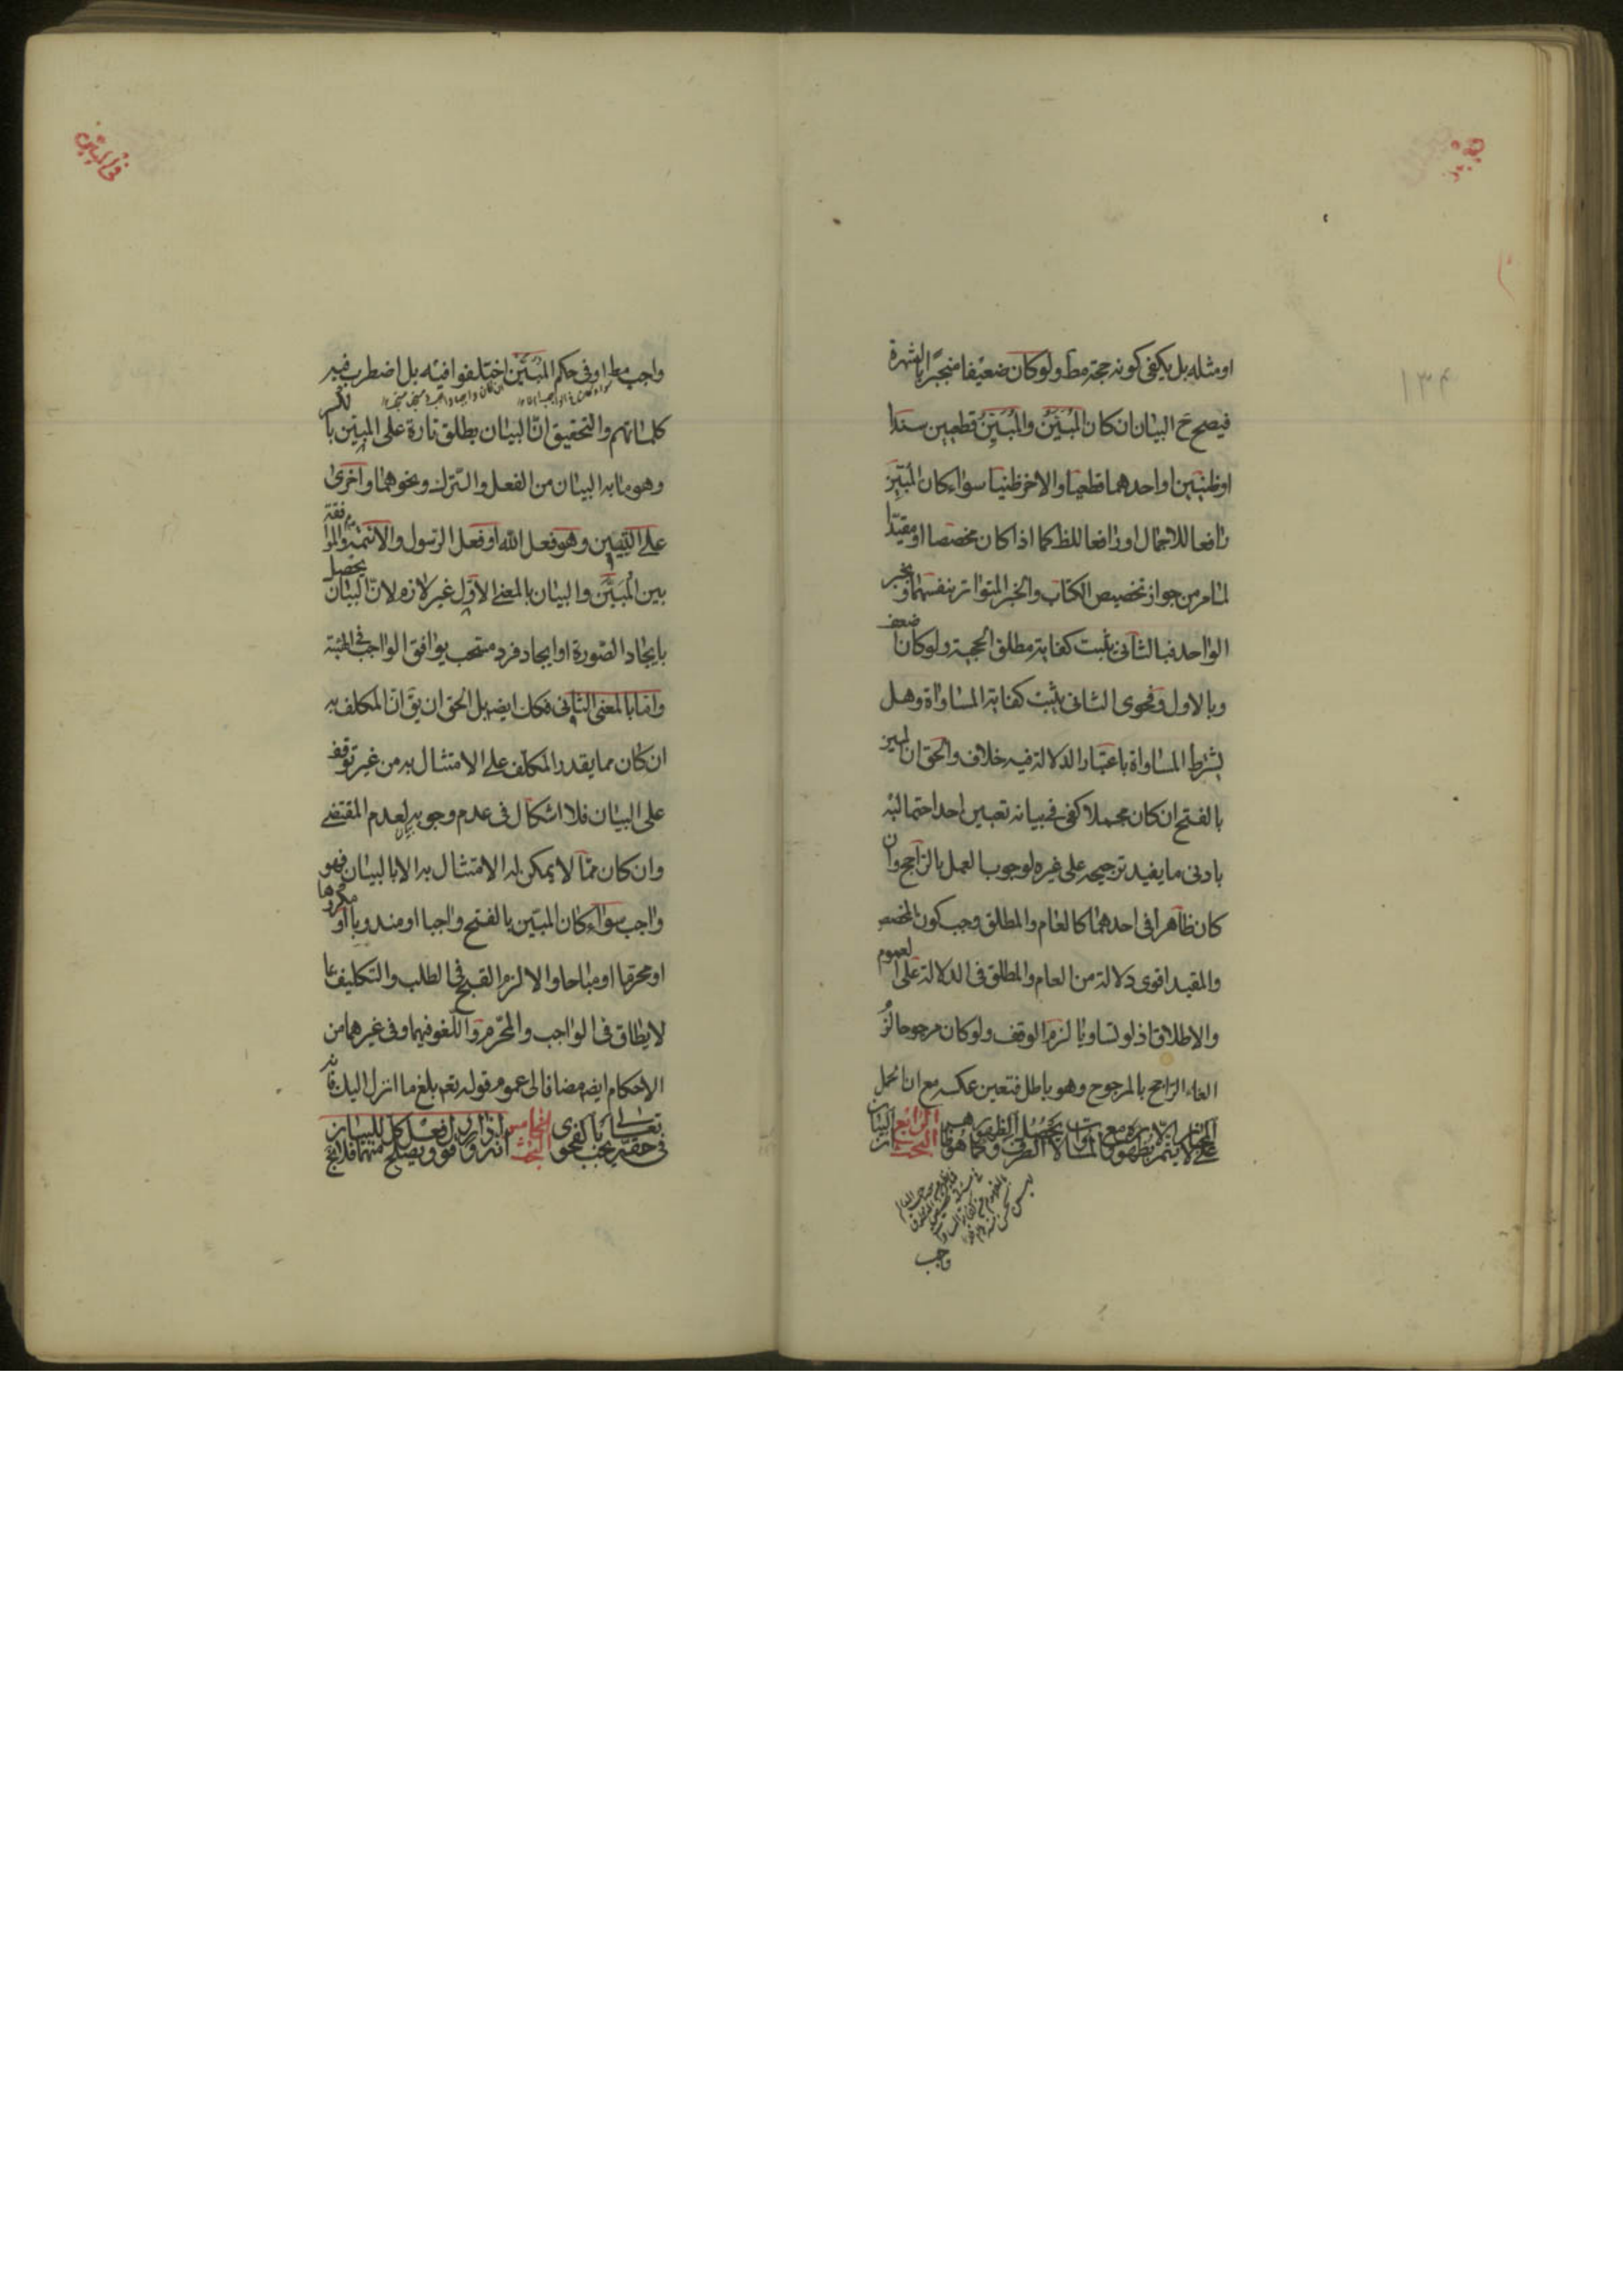 او مثله بل يكفى كونه حجة مط ولو كان ضعيفا منجبرا بالشهرة
فيصح ح البيان ان كان المُبَيَّن والمُبَيِّن قطعيين سندا
او ظنيين او احدهما قطعيا والاخر ظنيا سواء كان المبيِّن
رافعا للاجمال او رافعا للظ كما اذا كان مخصصا او مقيدا
لما مر من جواز تخصيص الكتاب والخبر المتواتر بنفسهما وبخبر
الواحد فبالثانى يثبت كفاية مطلق الحجية ولو كان اضعف
وبالاول وفحوى الثانى يثبت كفاية المساواة وهل
يشترط المساواة باعتبار الدلالة فيه خلاف والحق ان المبين
بالفتح ان كان مجملا كفى فى بيانه تعيين احد احتماليه
بادنى ما يفيد ترجيحه على غيره لوجوب العمل بالراجح وان
كان ظاهرا فى احدهما كالعام والمطلق وجب كون المخصص
والمقيد اقوى دلالة من العام والمطلق فى الدلالة على العموم
والاطلاق اذ لو تساويا لزم الوقف ولو كان مرجوحا لزم
الغاء الراجح بالمرجوح وهو باطل فتعين عكسه مع ان الحمل
البحث الرابع البيان
واجب
۱۳۴
فى المبين
واجب مط او فى حكم المُبَيَّن اختلفوا فيه بل اضطرب فيه
كلماتهم والتحقيق انّ البيان يطلق تارة على المبيِّن بالكسر
وهو ما به البيان من الفعل والترك ونحوهما واخرى
على التبيين وهو فعل الله او فعل الرسول والائمة والموافقة
بين المُبَيَّن والبيان بالمعنى الاول غير لازم لانّ البيان يحصل
بايجاد الصورة او ايجاد فرد مستحب يوافق الواجب فى الهيئة
واما بالمعنى الثانى فكك ايضه بل الحق ان يق انّ المكلف به
ان كان مما يقدر المكلف على الامتثال به من غير توقف
على البيان فلا اشكال فى عدم وجوبه لعدم المقتضى
وان كان ممّا لا يمكن له الامتثال به الا بالبيان فهو
واجب سواء كان المبيّن بالفتح واجبا او مندوبا او مكروها
او محرما او مباحا والا لزم القبح فى الطلب والتكليف بما
لا يطاق فى الواجب والمحرم واللغو فيهما وفى غيرهما من
الاحكام ايضه مضافا الى عموم قوله تعه بلغ ما انزل اليك فانه
البحث الخامس